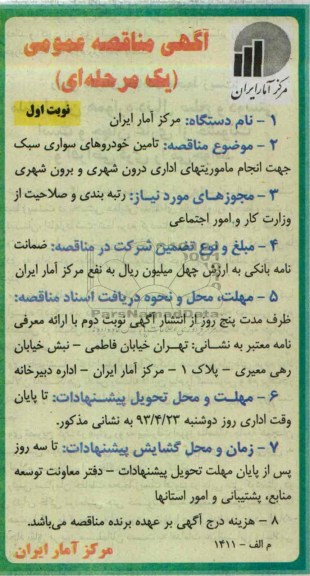 آگهی مناقصه عمومی
(یک مرحله‌ای)
مرکز آمار ایران
نوبت اول
۱ - نام دستگاه: مرکز آمار ایران
۲ - موضوع مناقصه: تامین خودروهای سواری سبک
جهت انجام ماموریتهای اداری درون شهری و برون شهری
۳ - مجوزهای مورد نیاز: رتبه بندی و صلاحیت از
وزارت کار و امور اجتماعی
۴ - مبلغ و نوع تضمین شرکت در مناقصه: ضمانت
نامه بانکی به ارزش چهل میلیون ریال به نفع مرکز آمار ایران
۵ - مهلت، محل و نحوه دریافت اسناد مناقصه:
ظرف مدت پنج روز از انتشار آگهی نوبت دوم با ارائه معرفی
نامه معتبر به نشانی: تهران خیابان فاطمی - نبش خیابان
رهی معیری - پلاک ۱ - مرکز آمار ایران - اداره دبیرخانه
۶ - مهلت و محل تحویل پیشنهادات: تا پایان
وقت اداری روز دوشنبه ۹۳/۴/۲۳ به نشانی مذکور.
۷ - زمان و محل گشایش پیشنهادات: تا سه روز
پس از پایان مهلت تحویل پیشنهادات - دفتر معاونت توسعه
منابع، پشتیبانی و امور استانها
۸ - هزینه درج آگهی بر عهده برنده مناقصه می‌باشد.
م الف - ۱۴۱۱
مرکز آمار ایران